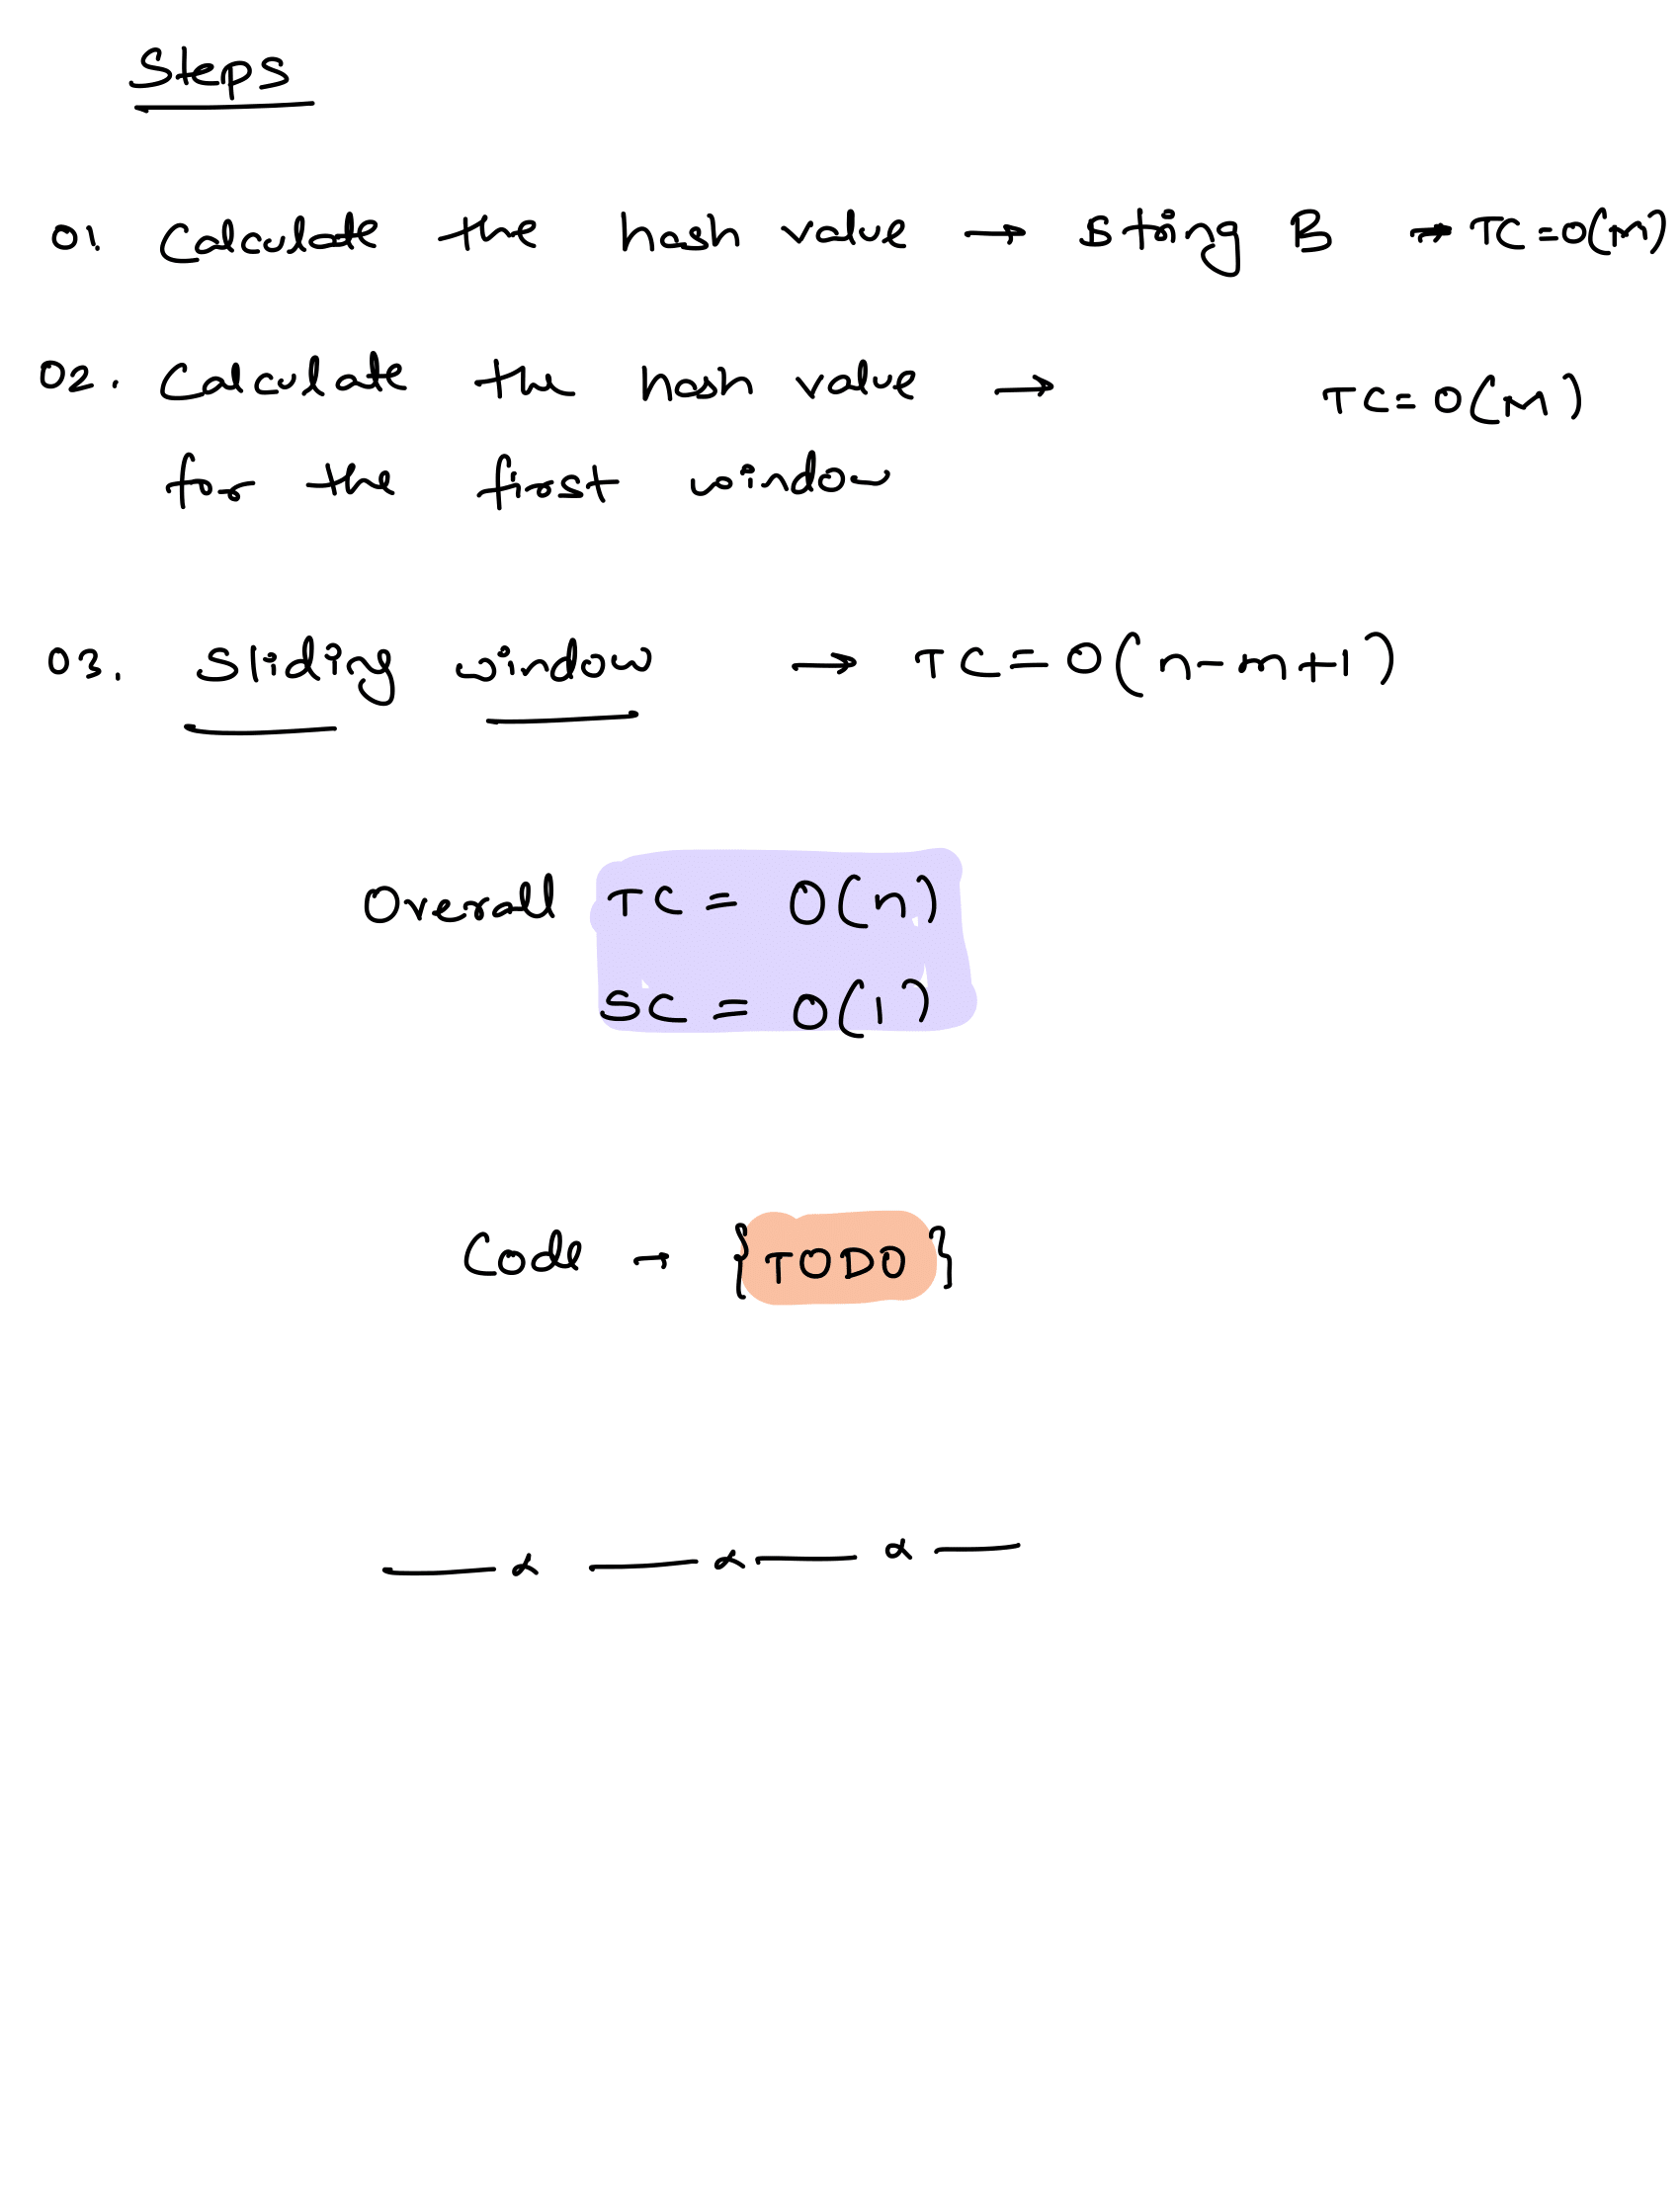 Steps
01. Calculate the hash value → sting B → TC = O(m)
02. Calculate the hash value → TC = O(m)
for the first window
03. Sliding window → TC = O(n-m+1)
Overall TC = O(n)
SC = O(1)
Code → {TODO}